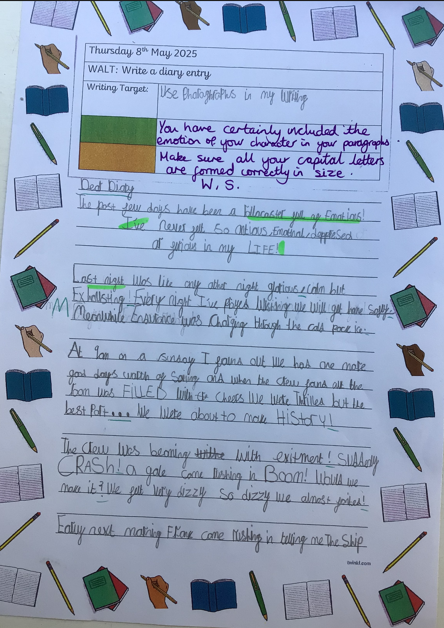 Thursday 8th May 2025
WALT: Write a diary entry
Writing Target:
Use Photographs in my Writing
You have certainly included the
emotion of your character in your paragraphs.
Make sure all your capital letters
are formed correctly in size.
W. S.
Dear Diary
The past few days have been a full of Emotions!
I've never felt so Emotional
or in my LIFE!
Last night Was like any other night glorious, calm but
Exhausting! Every night I've Writing We Will get home Safely.
M Meanwhile Endurance was Charging through the cold pack ice.
At 9am on a sunday I found out We had one more
good days of and when the crew found out the
was FILLED With Cheers We Were Thrilled but the
best Part.... We Were about to make HISTORY!
The Crew Was beaming with exitment! Suddenly
CRASH! a gale come Rushing in BOOM! Would we
make it? We felt Very dizzy So dizzy We almost !
Early next morning Frank come Rushing in telling me The Ship
twinkl.com